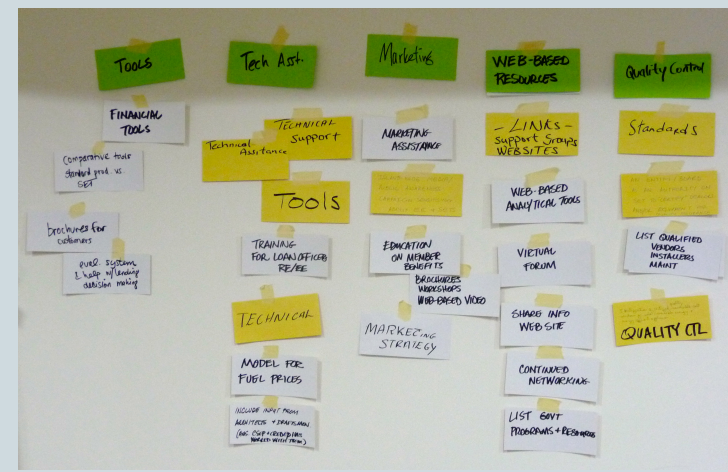 TOOLS
FINANCIAL
TOOLS
Comparative tools
standard prod. vs.
SET
brochures for
customers
eval. system
& help w/lending
decision making
Tech Asst.
TECHNICAL
Support
Technical
Assistance
TOOLS
TRAINING
FOR LOAN OFFICERS
RE/EE
TECHNICAL
MODEL FOR
FUEL PRICES
INCLUDE INPUT FROM
ARCHITECTS + DRAFTSMEN
WORKED WITH
Marketing
MARKETING
ASSISTANCE
EDUCATION
ON MEMBER
BENEFITS
BROCHURES
WORKSHOPS
WEB-BASED VIDEO
MARKETING
STRATEGY
WEB-BASED
RESOURCES
- LINKS -
Support Groups
WEBSITES
WEB-BASED
ANALYTICAL TOOLS
VIRTUAL
FORUM
SHARE INFO
WEB SITE
CONTINUED
NETWORKING
LIST GOVT
PROGRAMS + RESOURCES
Quality Control
Standards
LIST QUALIFIED
VENDORS
INSTALLERS
MAINT
QUALITY CTL